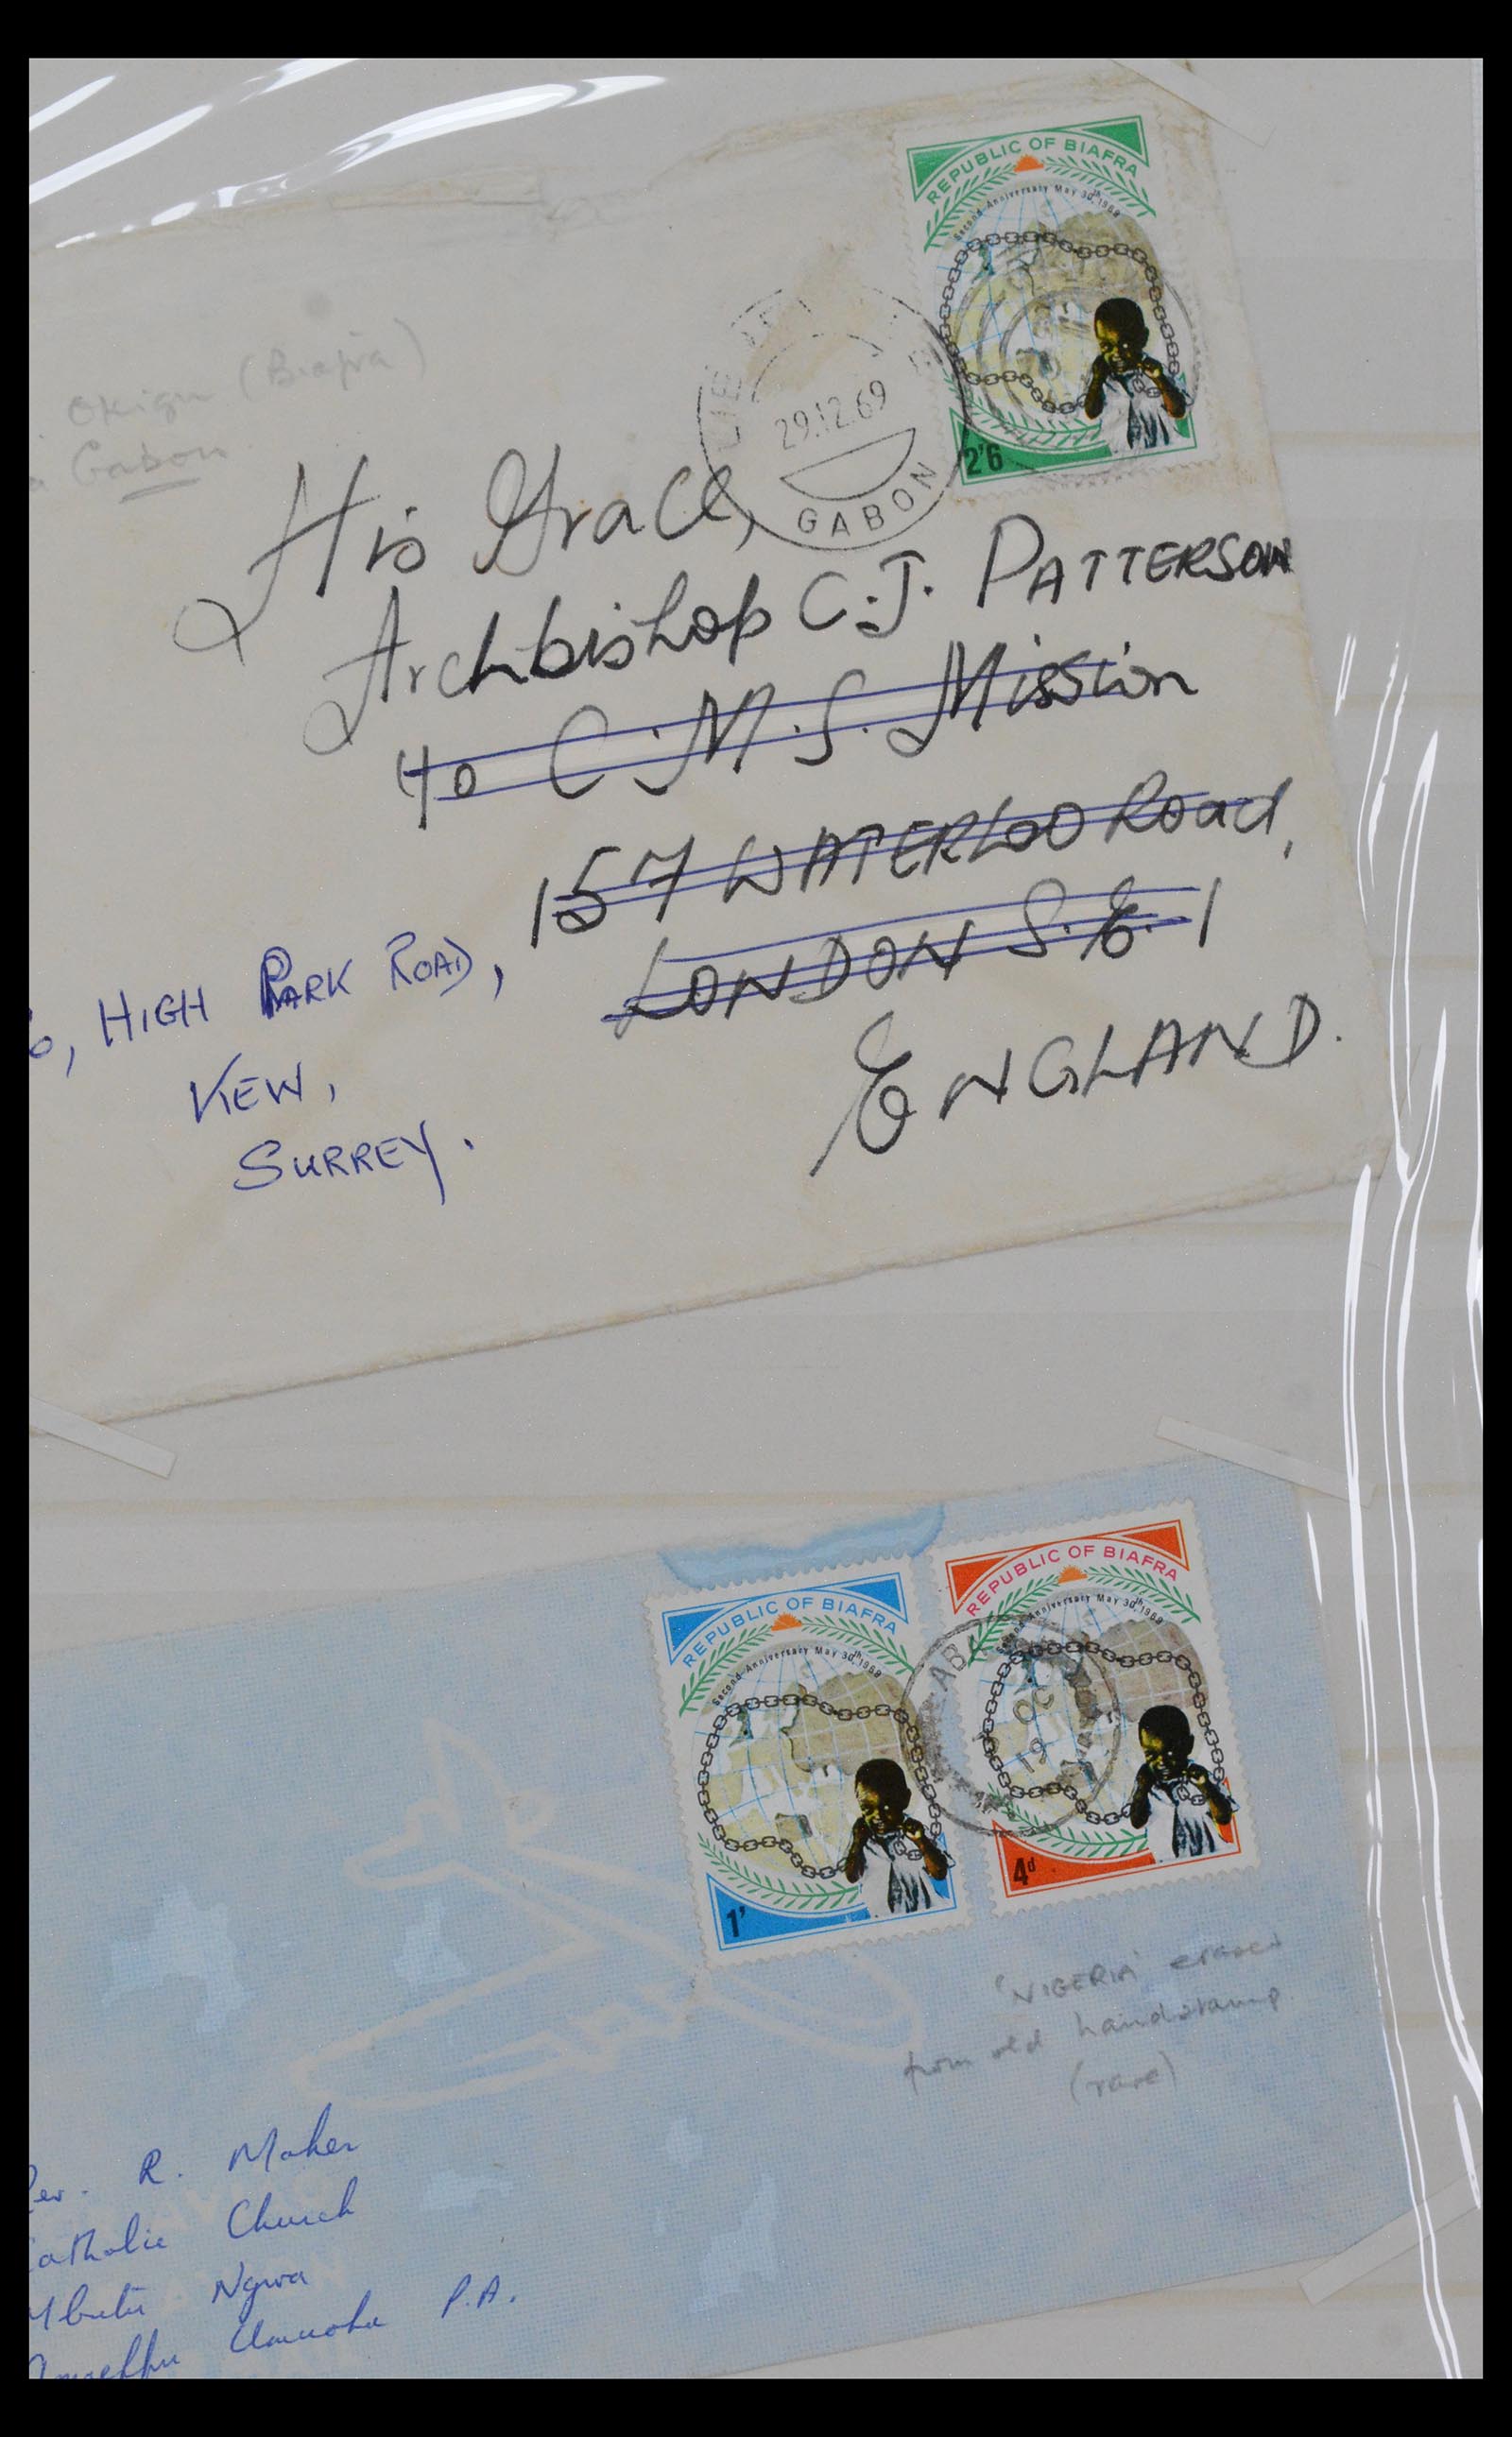 REPUBLIC OF BIAFRA
Second Anniversary May 30th, 1969
2'6
29.12.69
GABON
(Biafra)
Gabon
His Grace,
Archbishop C.J. PATTERSON
c/o C.M.S. Mission
157 WATERLOO Road,
LONDON S.E. 1
ENGLAND.
HIGH PARK ROAD,
KEW,
SURREY.
REPUBLIC OF BIAFRA
Second Anniversary May 30th, 1969
1'
REPUBLIC OF BIAFRA
Second Anniversary May 30th, 1969
4d
ABA
OC
19
'NIGERIA' erased
from old handstamp
(rare)
R. Maher
Catholic Church
Ngwa
P.A.